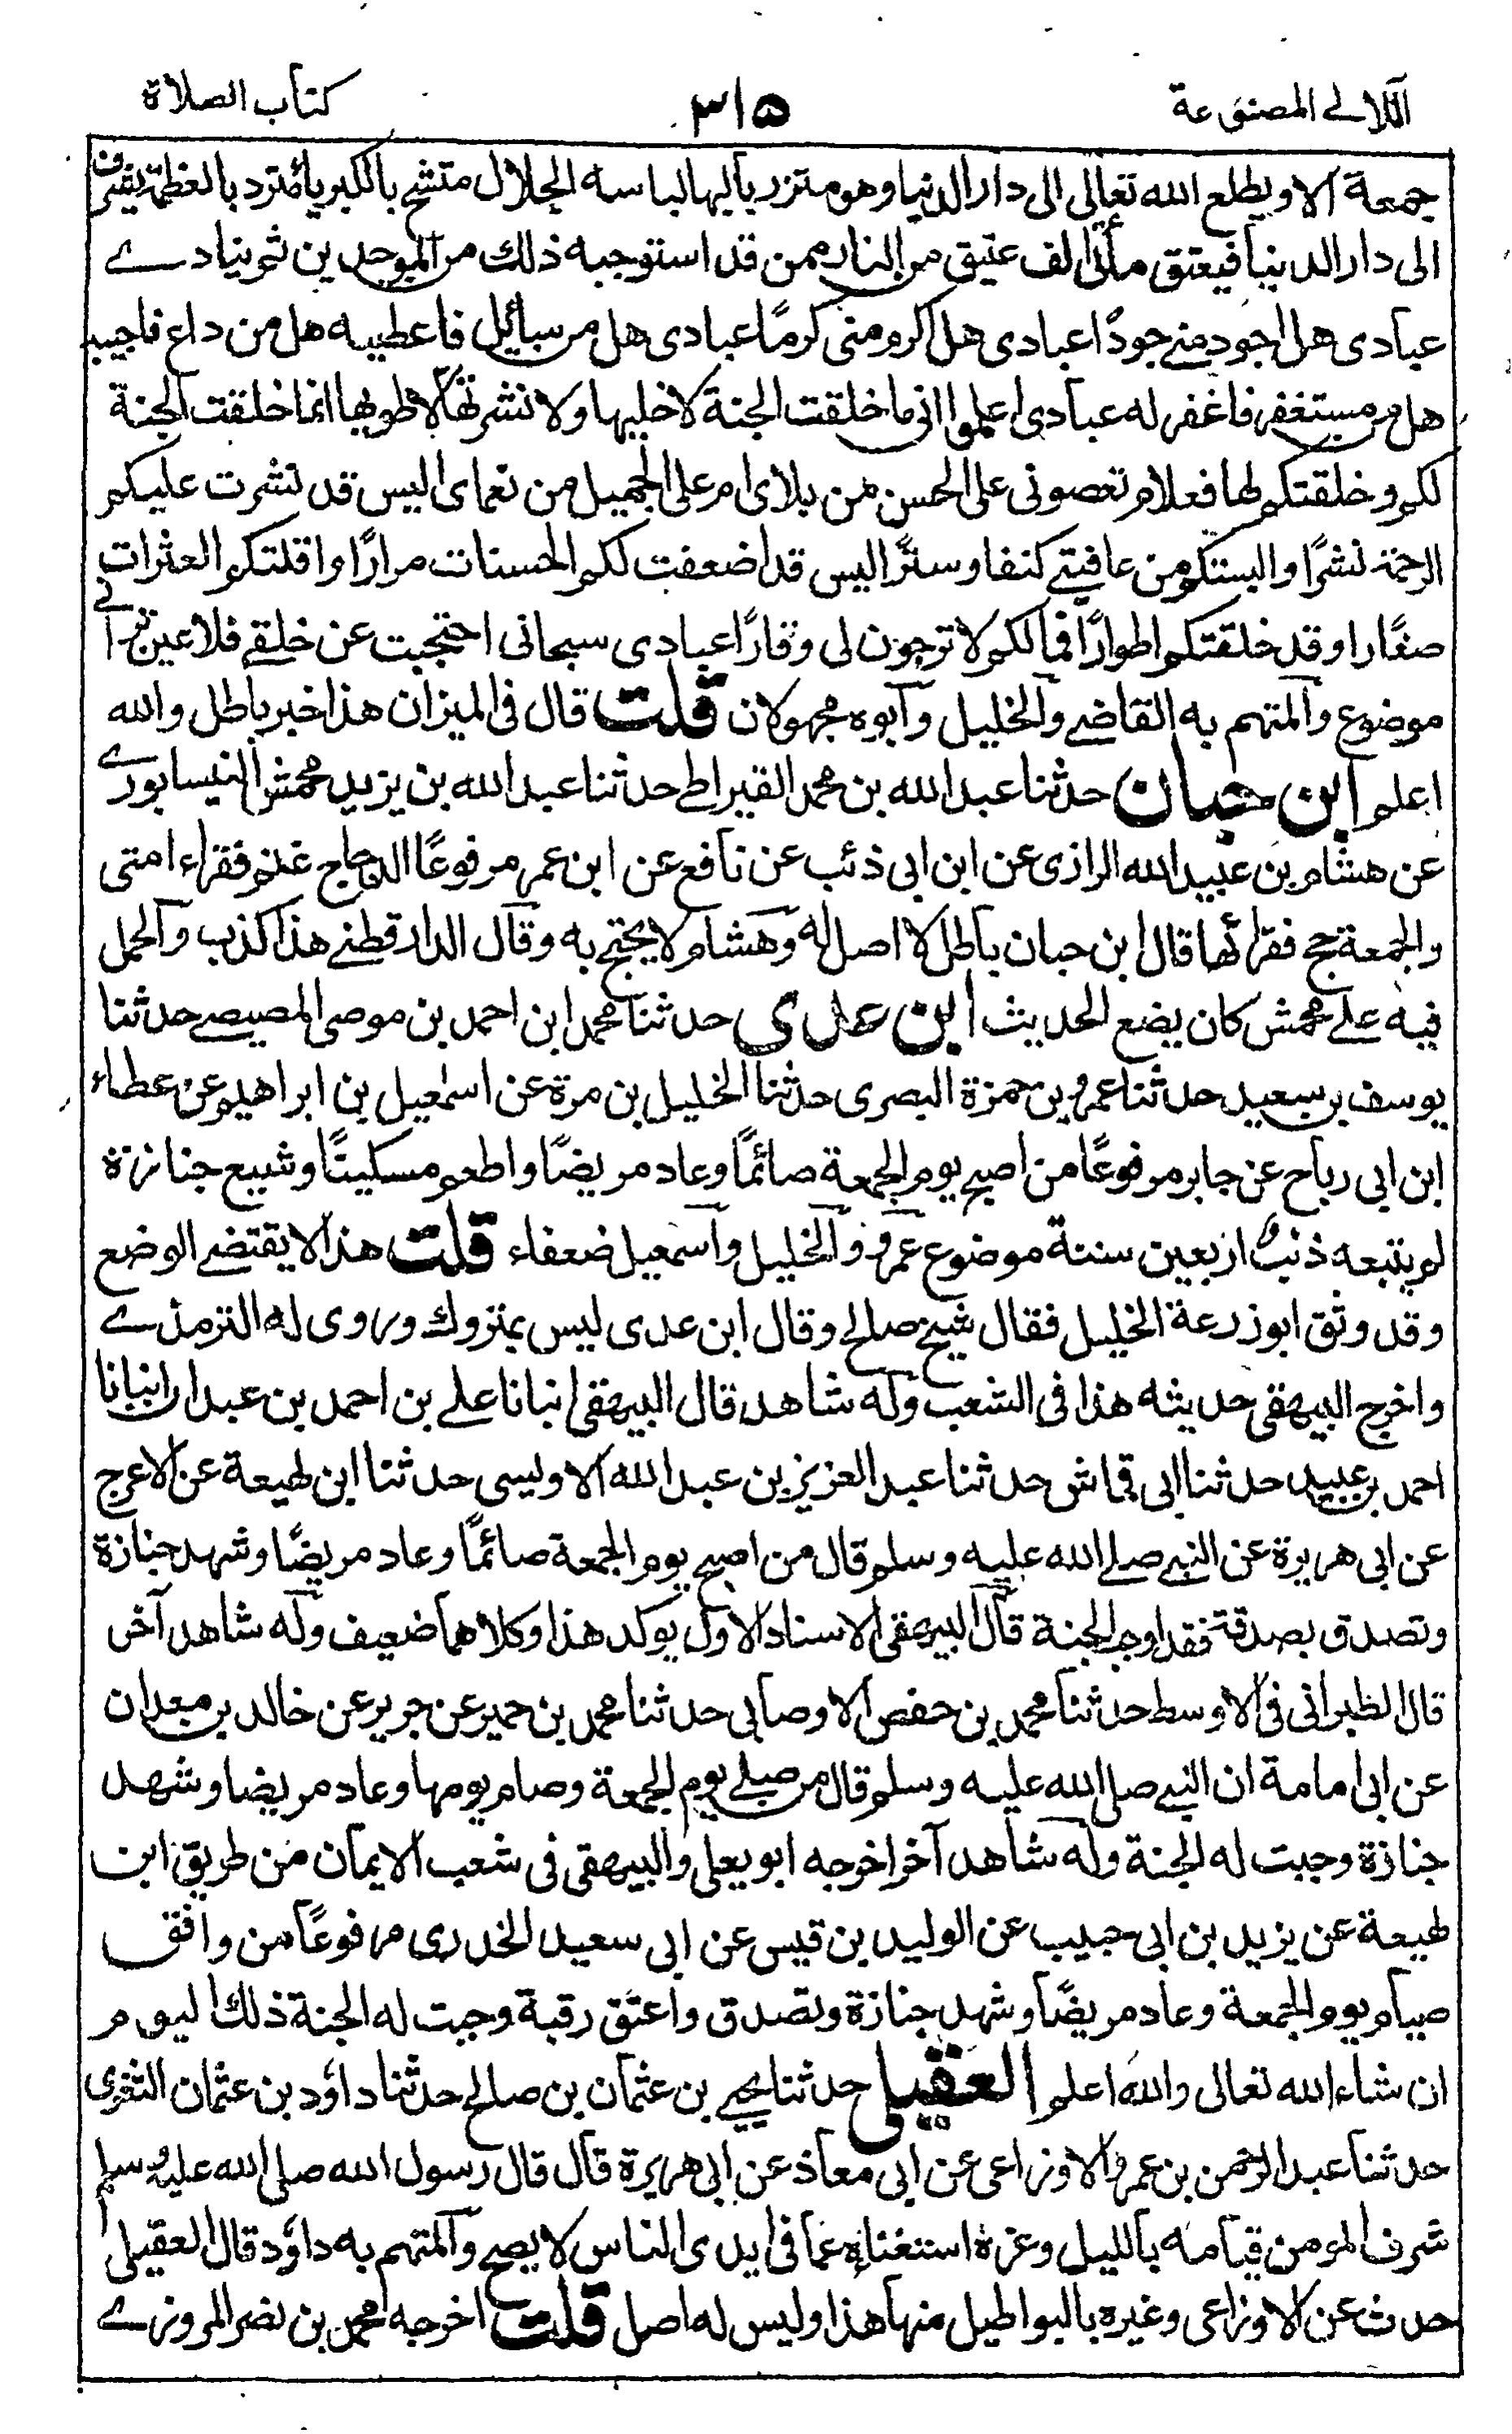 اللآلي المصنوعة
٣١٥
كتاب الصلاة
جمعة الا ويطلع الله تعالى الى دار الدنيا وهو متزر بالبها لباسه الجلال متشح بالكبرياء متزد بالعظمة يشرف
الى دار الدنيا فيعتق مأتى الف عتيق من النار ممن قد استوجبه ذلك من الموحدين ثم ينادے
عبادى هل اجود منے جودًا عبادى هل اكرم منى كرمًا عبادى هل من سائل فاعطيه هل من داع فاجيبه
هل من مستغفر فاغفر له عبادى اعلموا انى ما خلقت الجنة لاخليها ولا نشرتها لاطويها انما خلقت الجنة
لكم وخلقتكم لها فعلام تعصونى على الحسن من بلاى ام على الجميل من نعماى اليس قد نشرت عليكم
الرحمة نشرًا والبستكم من عافيتے كنفا وسترًا اليس قد اضعفت لكم الحسنات مرارًا واقلتكم العثرات
صغارا وقد خلقتكم اطوارًا فمالكم لا ترجون لى وقارًا عبادى سبحانى احتجبت عن خلقے فلا عين ترانے
موضوع والمتهم به القاضے والخليل وابوه مجهولان قلت قال فى الميزان هذا خبر باطل والله
اعلم ابن حبان حدثنا عبد الله بن محمد القيراطے حدثنا عبد الله بن يزيد محمش النيسابورے
عن هشام بن عبيد الله الرازى عن ابن ابى ذئب عن نافع عن ابن عمر مرفوعًا الدجاج غنم فقراء امتى
والجمعة حج فقرائها قال ابن حبان باطل لا اصل له وهشام لا يحتج به وقال الدارقطنے هذا كذب والحمل
فيه علے محمش كان يضع الحديث ابن عدى حدثنا محمد ابن احمد بن موصى المصيصے حدثنا
يوسف بن سعيد حدثنا عمرو بن حمزة البصرى حدثنا الخليل بن مرة عن اسمعيل بن ابراهيم عن عطاء
ابن ابى رباح عن جابر مرفوعًا من اصبح يوم الجمعة صائمًا وعاد مريضًا واطعم مسكينًا وشيع جنازة
لم يتبعه ذنب اربعين سنة موضوع عمرو والخليل واسمعيل ضعفاء قلت هذا لا يقتضے الوضع
وقد وثق ابو زرعة الخليل فقال شيخ صالح وقال ابن عدى ليس بمتروك وروى له الترمذے
واخرج البيهقى حديثه هذا فى الشعب وله شاهد قال البيهقى انبانا علے بن احمد بن عبدان انبانا
احمد بن عبيد حدثنا ابى قماش حدثنا عبد العزيز بن عبد الله الاوليسى حدثنا ابن لهيعة عن الاعرج
عن ابى هريرة عن النبے صلے الله عليه وسلم قال من اصبح يوم الجمعة صائمًا وعاد مريضًا وشهد جنازة
وتصدق بصدقة فقد اوجب الجنة قال البيهقى الاسناد الاول يوكد هذا وكلاهما ضعيف وله شاهد آخر
قال الطبرانى فى الاوسط حدثنا محمد بن حفص الاوصابى حدثنا محمد بن حمير عن جرير عن خالد بن معدان
عن ابى امامة ان النبے صلى الله عليه وسلم قال من صلے يوم الجمعة وصام يومها وعاد مريضا وشهد
جنازة وجبت له الجنة وله شاهد آخر اخرجه ابو يعلى والبيهقى فى شعب الايمان من طريق ابن
لهيعة عن يزيد بن ابى حبيب عن الوليد بن قيس عن ابى سعيد الخدرى مرفوعًا من وافق
صيام يوم الجمعة وعاد مريضًا وشهد جنازة وتصدق واعتق رقبة وجبت له الجنة ذلك اليوم
ان شاء الله تعالى والله اعلم العقيلى حدثنا يحيے بن عثمان بن صالح حدثنا داود بن عثمان الثغرى
حدثنا عبد الرحمن بن عمرو الاوزاعى عن ابى معاذ عن ابى هريرة قال قال رسول الله صلى الله عليه وسلم
شرف المومن قيامه بالليل وعزه استغناؤه عما فى ايدى الناس لا يصح والمتهم به داود قال العقيلى
حدث عن الاوزاعى وغيره بالبواطيل منها هذا وليس له اصل قلت اخرجه محمد بن نصر المروزے